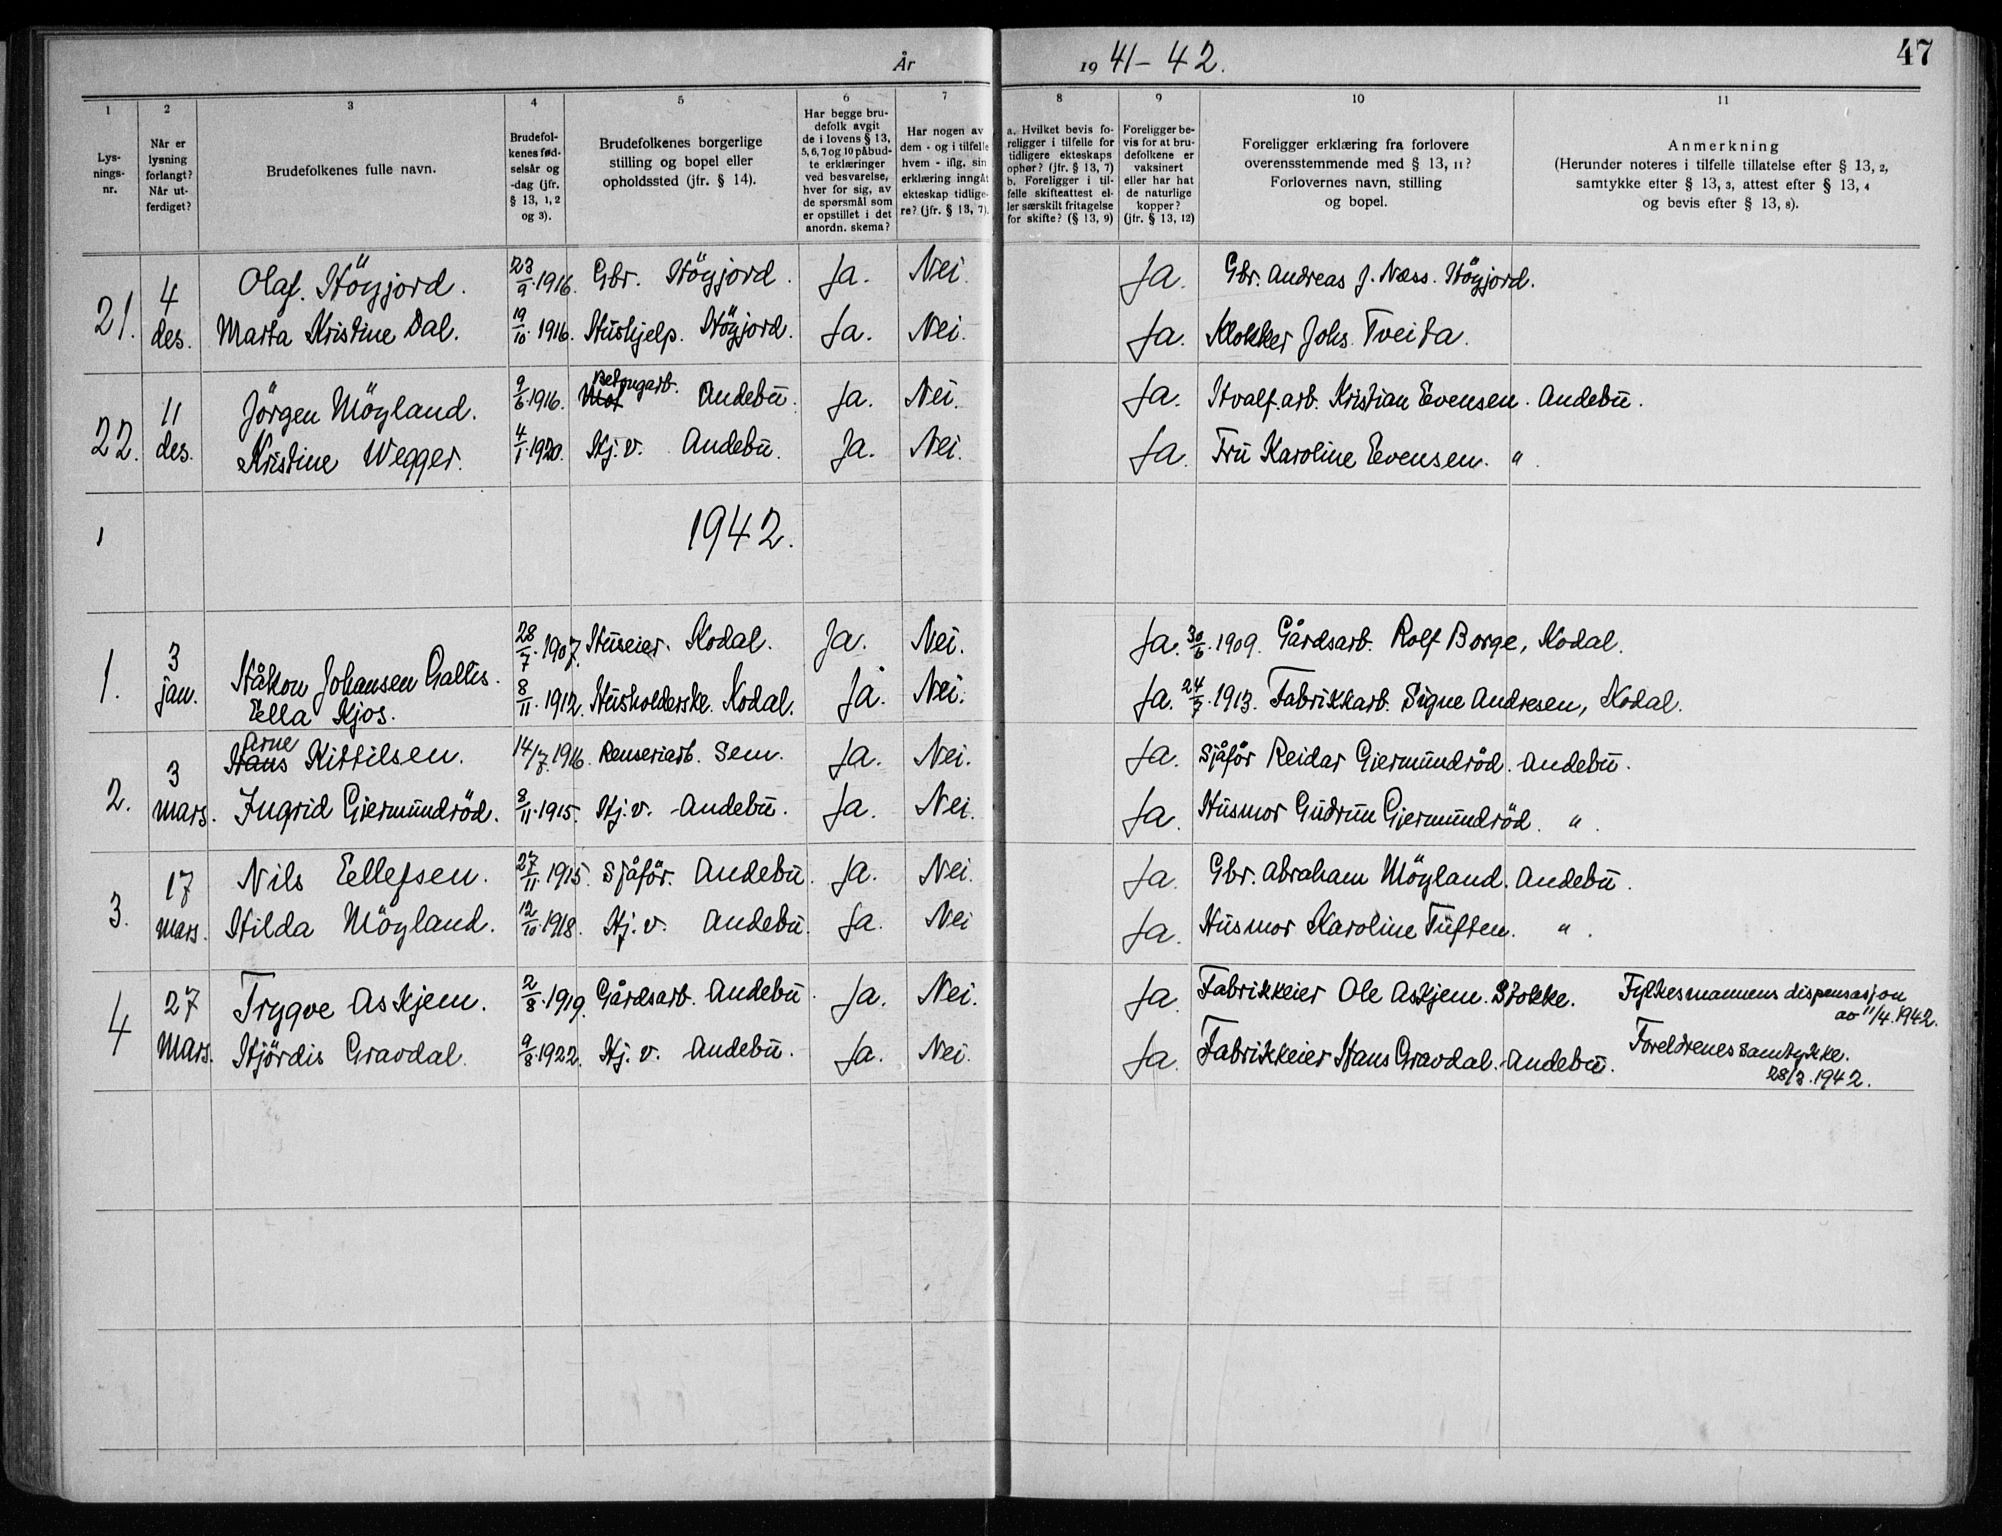 År 1941-42.
47
1
2
3
4
5
6
7
8
9
10
11
Lys-
nings-
nr.
Når er
lysning
forlangt?
Når ut-
ferdiget?
Brudefolkenes fulle navn.
Brudefol-
kenes fød-
selsår og
-dag (jfr.
§ 13, 1, 2
og 3).
Brudefolkenes borgerlige
stilling og bopel eller
opholdssted (jfr. § 14).
Har begge bru-
defolk avgit
de i lovens § 13,
5, 6, 7 og 10 påbud-
te erklæringer
ved besvarelse,
hver for sig, av
de spørsmål som
er opstillet i det
anordn. skema?
Har nogen av
dem - og i tilfelle
hvem - iflg. sin
erklæring inngåt
ekteskap tidlige-
re? (jfr. § 13, 7).
a. Hvilket bevis fo-
religger i tilfelle for
tidligere ekteskaps
ophør? (jfr. § 13, 7)
b. Foreligger i til-
felle skifteattest el-
ler særskilt fritagelse
for skifte? (§ 13, 9)
Foreligger be-
vis for at bru-
defolkene er
vaksinert
eller har hat
de naturlige
kopper?
(jfr. § 13, 12)
Foreligger erklæring fra forlovere
overensstemmende med § 13, 11?
Forlovernes navn, stilling
og bopel.
Anmerkning
(Herunder noteres i tilfelle tillatelse efter § 13, 2,
samtykke efter § 13, 3, attest efter § 13, 4
og bevis efter § 13, 8).
21. 4 des. Olaf Högjord. 23/9.1916. Gbr. Högjord. Ja. Nei. Ja. Gbr. Andreas J. Næss. Högjord.
Marta Kristine Dal. 19/10.1916. Hushjelp. Högjord. Ja. Nei. Ja. Klokker Johs. Tveita.
22. 11 des. Jörgen Möyland. 9/6.1916. Betongarb. Andebu. Ja. Nei. Ja. Hvalf.arb. Kristian Evensen. Andebu.
Kristine Wegger. 4/1.1920. Hj.v. Andebu. Ja. Nei. Ja. Fru Karoline Evensen. "
1
1942.
1. 3 jan. Håkon Johansen Gallis. 28/7.1907. Huseier. Kodal. Ja. Nei. Ja. 30/6.1909. Gårdsarb. Rolf Borge, Kodal.
Ella Hjos. 8/11.1912. Husholderske. Kodal. Ja. Nei. Ja. 24/7.1913. Fabrikkarb. Signe Andresen, Kodal.
2. 3 mars. Hans Arne Kittilsen. 14/7.1916. Renseriarb. Sem. Ja. Nei. Ja. Sjåför Reidar Gjermundröd. Andebu.
Ingrid Gjermundröd. 8/11.1915. Hj.v. Andebu. Ja. Nei. Ja. Husmor Gudrun Gjermundröd. "
3. 17 mars. Nils Ellefsen. 27/11.1915. Sjåför. Andebu. Ja. Nei. Ja. Gbr. Abraham Möyland. Andebu.
Hilda Möyland. 12/10.1918. Hj.v. Andebu. Ja. Nei Ja. Husmor Karoline Tuften. "
4 27 Mars. Trygve Askjem. 2/8.1919. Gårdsarb. Andebu. Ja. Nei. Ja. Fabrikkeier Ole Askjem. Stokke. Fylkesmannens dispensasjon
av 11/4.1942.
Hjördis Gravdal. 9/8.1922. Hj.v. Andebu. Ja. Nei. Ja. Fabrikkeier Hans Gravdal. Andebu. Foreldrenes samtykke.
28/3.1942.